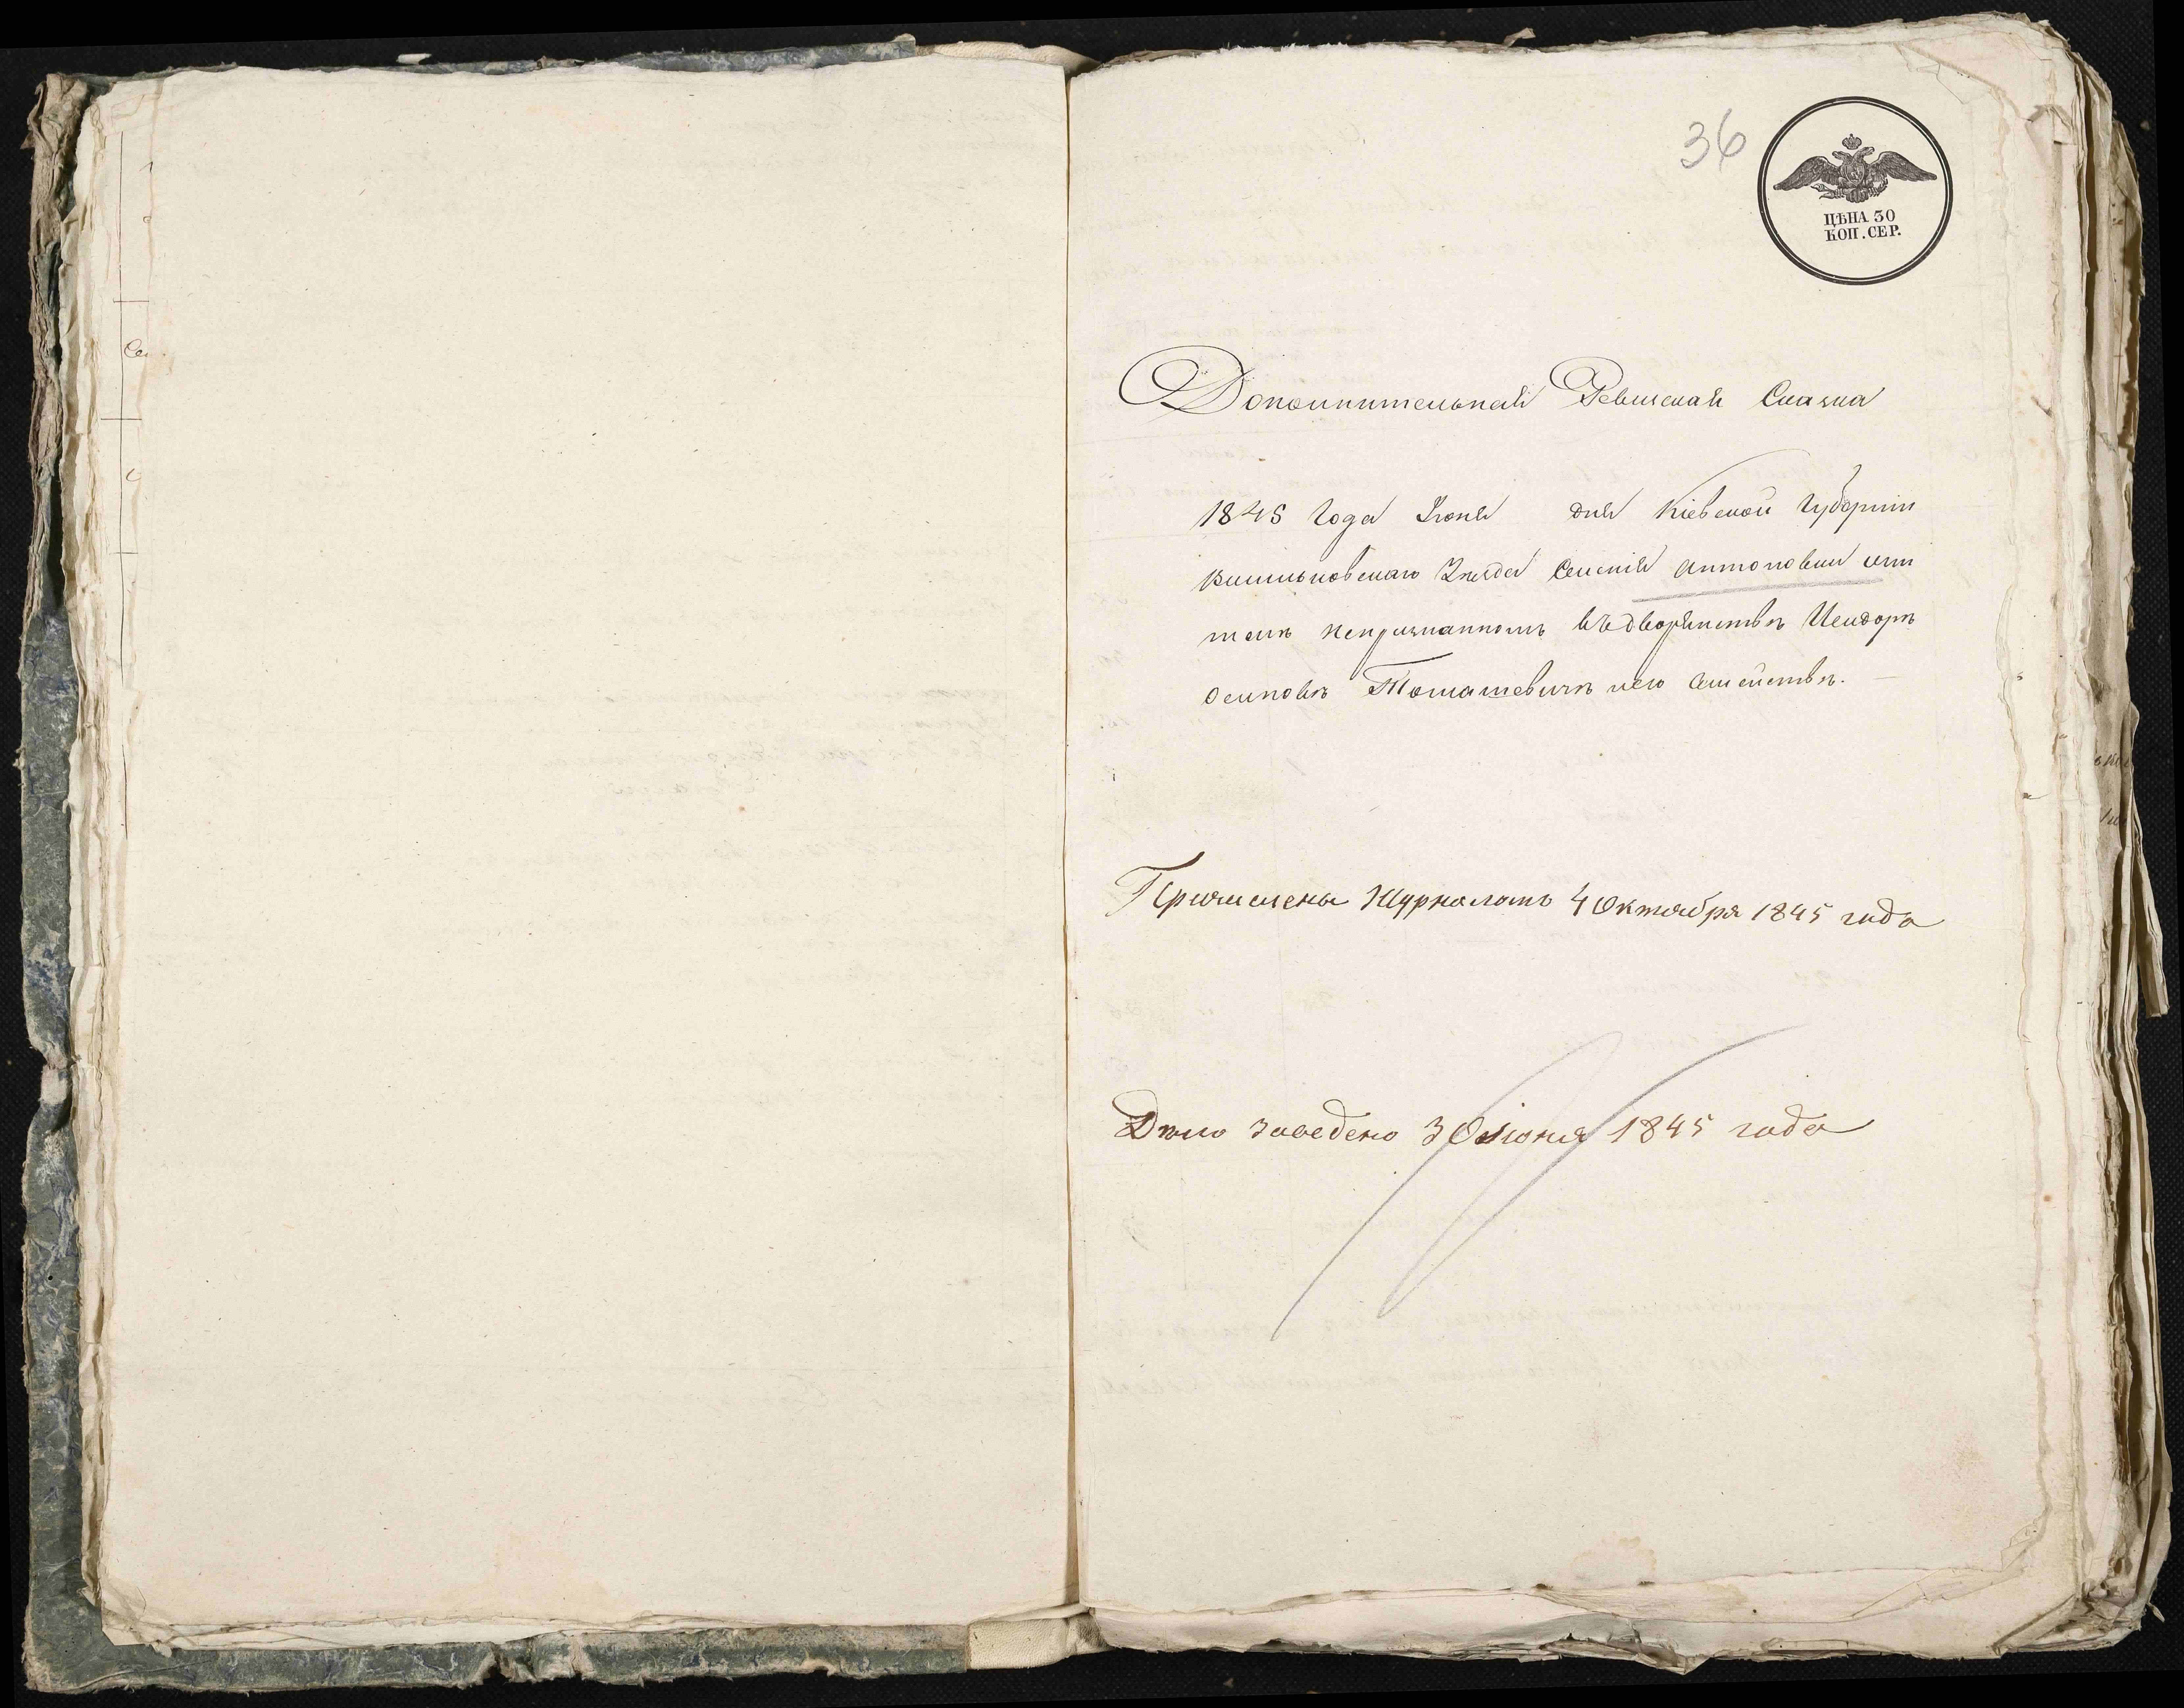 36
ЦѢНА 30
КОП. СЕР.
Дополнительная Ревиская Сказка
1845 Года Іюня дня Кіевской Губерніи
Васильковскаго Уѣзда Селенія Антоновки
непризнанномъ въ дворянствѣ
Осиповѣ Томашевичѣ и его семействѣ.
Причислены Журналомъ 4 Октября 1845 года
Дѣло заведено 30 Июня 1845 года